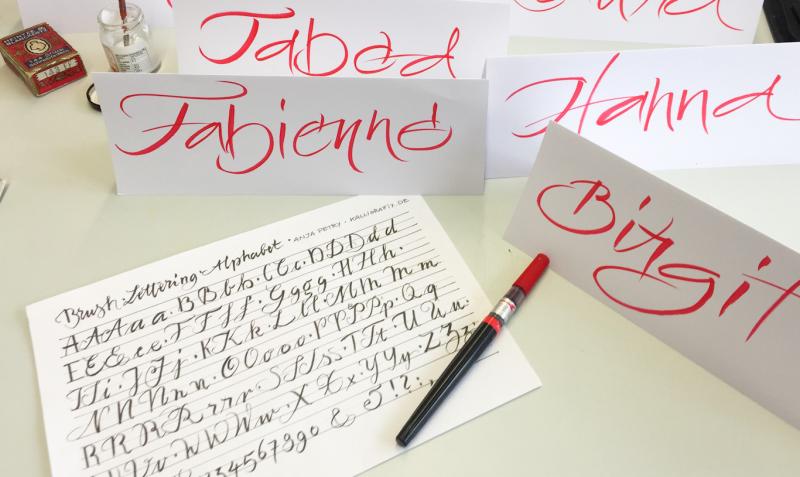 Tabea
Fabienne
Hanna
Birgit
Brush-Lettering-Alphabet · ANJA PETRY · KALLIGRAFIX.DE
AAAaaa · BBbb · CCc · DDDdd
EEEee · FFff · Gggg · HHh ·
IIi · JJj · KKk · LLll · MMmm
NNNnn · OOooo · PPPPp · Qq
RRRRrrr · SSSss · TTt · UUu ·
Vv · WWWw · XXx · YYy · ZZz
34567890 & !?